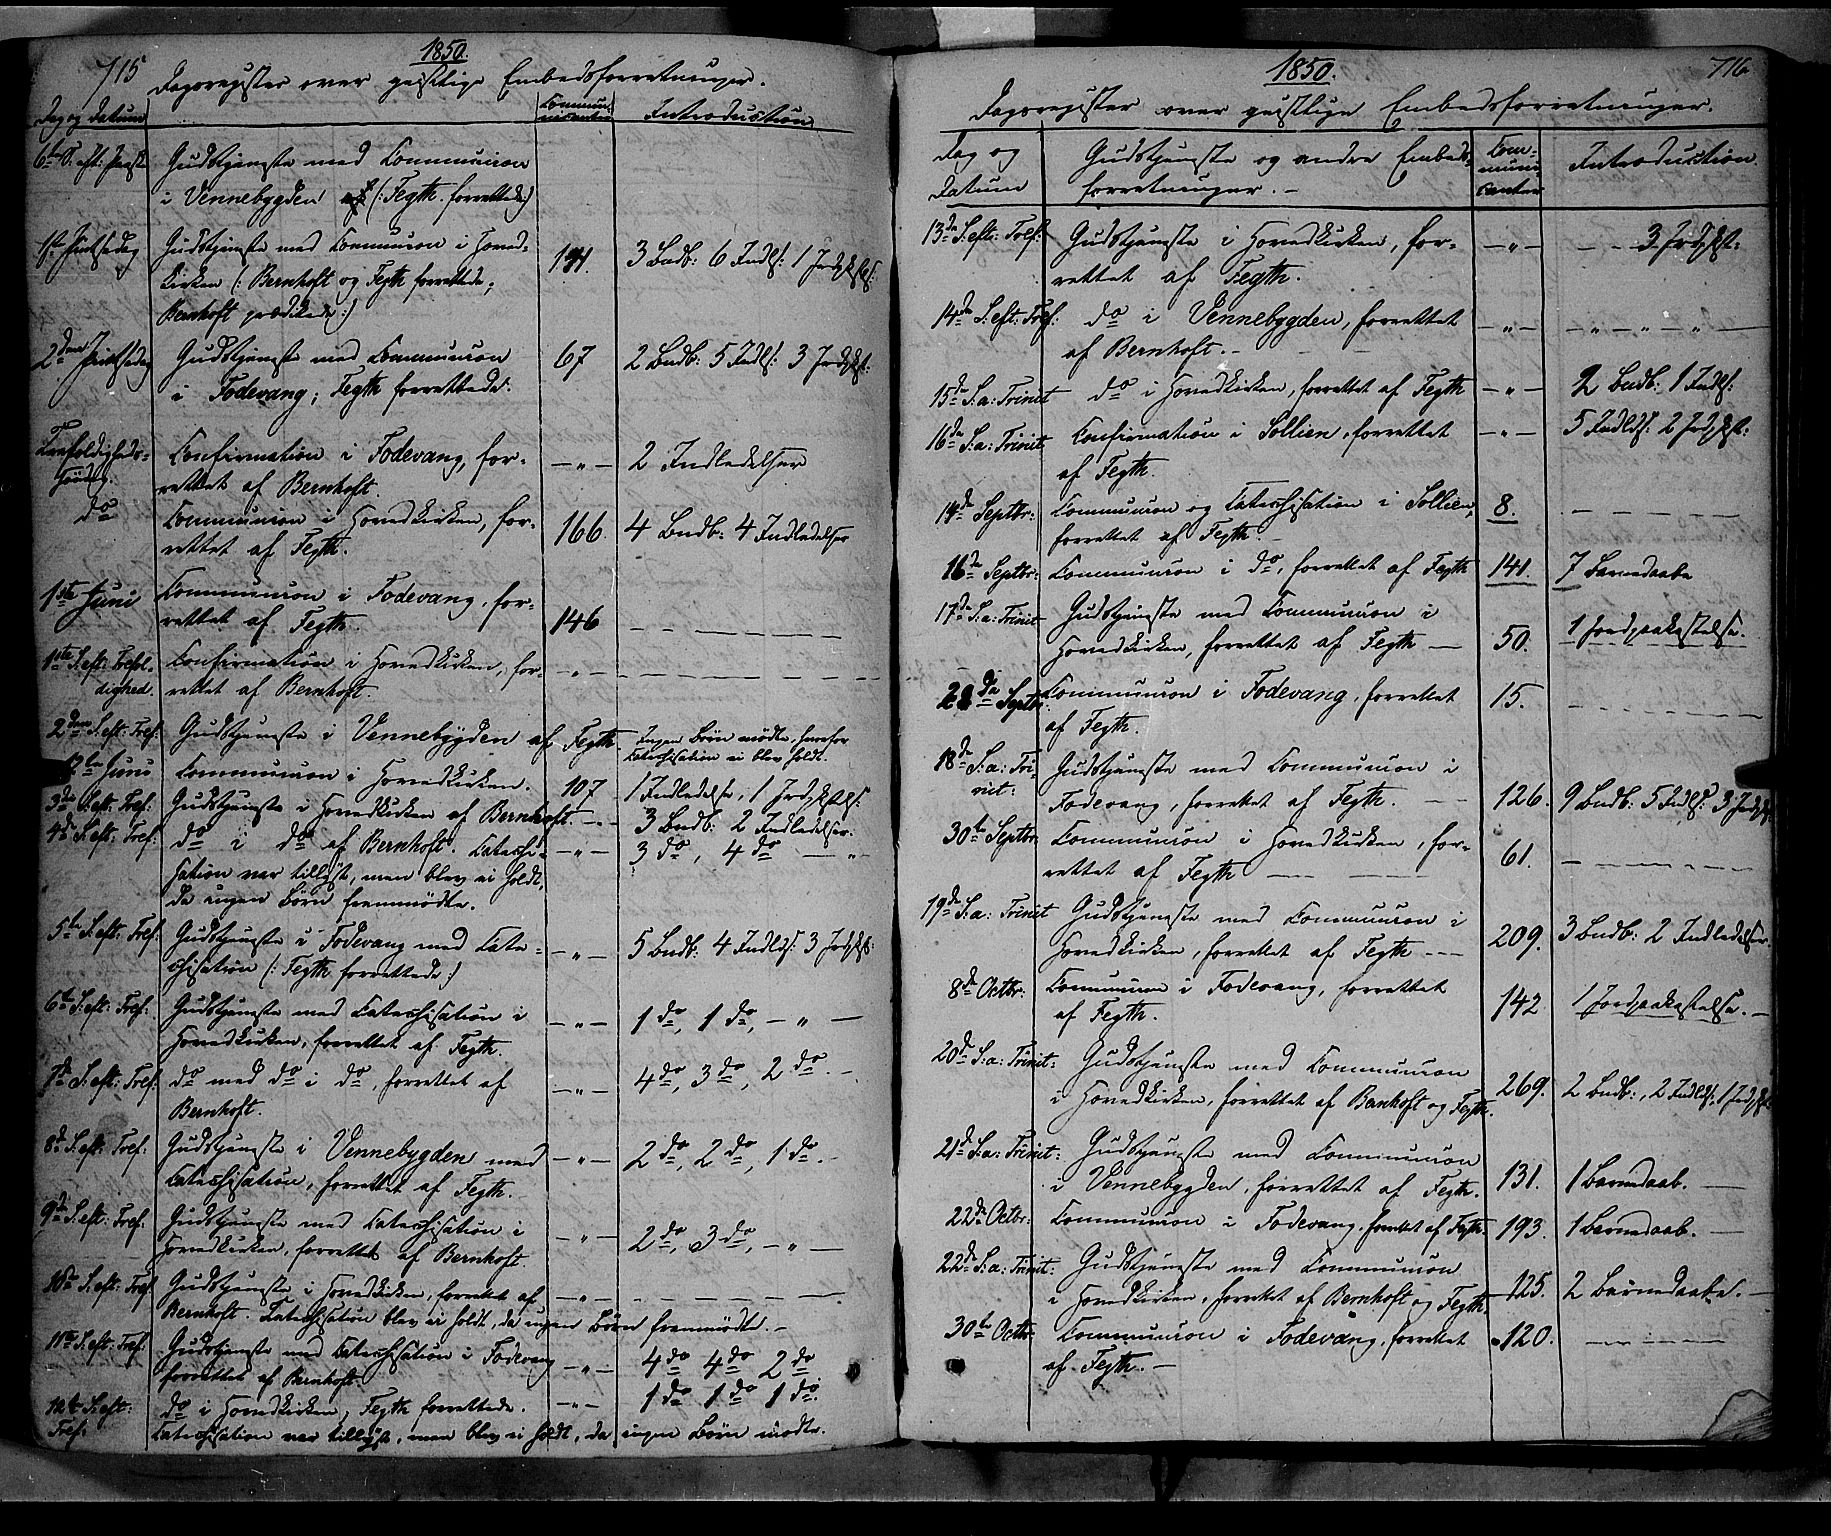 715
1850.
Dagsregister over geistlige Embedsforretninger.
Dag og Datum
Communicanter
Introduction
6te S. eft: Paaske
Gudstjeneste med Communion
i Vennebygden (: Fegth forrettede:)
1ste Pintsedag
Gudstjeneste med Communion i Hoved-
kirken (: Bernhoft og Fegth forrettede;
Bernhoft prædikede:)
3 Budb: 6 Indls: 1 Jordpkstls:
2den Pintsedag
Gudstjeneste med Communion
i Fodevang; Fegth forrettede.
67
2 Budb: 5 Indls: 3 Jordpkst:
Trefoldigheds-
Søndag.
Confirmation i Fodevang, for-
rettet af Bernhoft.
— " —
2 Indledelser
do
Communion i Hovedkirken, for-
rettet af Fegth.
166.
4 Budb: 4 Indledelser
1ste Juni
Communion i Fodevang, for-
rettet af Fegth.
146
1ste S. eft: Trefol-
dighed.
Confirmation i Hovedkirken, for-
rettet af Bernhoft.
— " —
2den S. eft: Tref:
Gudstjeneste i Vennebygden af Fegth.
Ingen Børn mødte, hvorfor
Catechisation ei blev holdt.
12te Juni
Communion i Hovedkirken.
107
1 Indledelse, 1 Jordpkstls:
3die S. eft: Tref:
Gudstjeneste i Hovedkirken af Bernhoft.
— " —
3 Budb: 2 Indledelser.
4de S. eft: Tref:
do i do af Bernhoft. Catechi-
sation var tillyst, men blev ei holdt,
da ingen Børn fremmødte.
— " —
3 do, 4 do — "
5te S. eft: Tref:
Gudstjeneste i Fodevang med Cate-
chisation (: Fegth forrettede:)
— " —
5 Budb: 4 Indlds: 3 Jordpkst:
6te S. eft: Tref:
Gudstjeneste med Catechisation i
Hovedkirken, forrettet af Fegth.
— " —
1 do, 1 do, — " —
7de S. eft: Tref:
do med do i do, forrettet af
Bernhoft.
— " —
4 do, 3 do, 2 do. —
8de S. eft: Tref:
Gudstjeneste i Vennebygden med
Catechisation, forrettet af Fegth.
— " —
2 do, 2 do, 1 do. —
9de S. eft: Tref:
Gudstjeneste med Catechisation i
Hovedkirken, forrettet af Bernhoft.
— " —
2 do, 3 do, — " —
10de S. eft: Tref
Gudstjeneste i Hovedkirken, forrettet af
Bernhoft. Catechisation blev ei holdt, da ingen Børn fremmødte. —
— " —
11te S. eft: Tref:
Gudstjeneste med Catechisation i Fodevang
forrettet af Bernhoft.
— " —
4 do 4 do 2 do
12te S. eft:
Tref:
do i Hovedkirken, Fegth forrettede.
— " —
1 do 1 do 1 do.
Catechisation var tillyst, men blev ei holdt, da ingen Børn mødte.
716
1850.
Dagsregister over geistlige Embedsforretninger.
Dag og
Datum
Gudstjeneste og andre Embeds-
forretninger. —
Com-
muni-
canter
Introduction
13de S. eft: Tref:
Gudstjeneste i Hovedkirken, for-
rettet af Fegth.
— " —
— — 3 Jordpkst:
14de S. eft: Tref:
do i Vennebygden, forrettet
af Bernhoft. —
— " —
— " — " — " —
15de S. a: Trinit
do i Hovedkirken, forrettet af Fegth
— " —
2 Budb: 1 Indls:
16de S. a: Trinit
Confirmation i Sollien, forrettet
af Fegth.
— " —
5 Indlds: 2 Jordpkst:
14de Septbr:
Communion og Catechisation i Sollien,
forrettet af Fegth
8.
16de Septbr:
Communion i do, forrettet af Fegth
141.
7 Barnedaabe
17de S. a: Trinit
Gudstjeneste med Communion i
Hovedkirken, forrettet af Fegth —
50.
1 Jordpaakastelse.
Septbr:
Communion i Fodevang, forrettet
af Fegth.
15.
18de S. a: Tri-
nit:
Gudstjeneste med Communion i
Fodevang, forrettet af Fegth. —
126.
9 Budb: 5 Indls: 3 Jordpkst:
30te Septbr:
Communion i Hovedkirken, for-
rettet af Fegth —
61.
19de S. a: Trinit
Gudstjeneste med Communion i
Hovedkirken, forrettet af Fegth —
209.
3 Budb: 2 Indledelser.
8de Octbr:
Communion i Fodevang, forrettet
af Fegth.
142
1 Jordpaakastelse. —
20de S. a: Trinit:
Gudstjeneste med Communion
i Hovedkirken, forrettet af Bernhoft og Fegth.
269.
2 Budb:, 2 Indlds:, 1 Jordpkst:
21de S. a: Trinit:
Gudstjeneste med Communion
i Vennebygden, forrettet af Fegth.
131.
1 Barnedaab. —
22de Octbr:
Communion i Fodevang, forrettet af Fegth.
193.
1 Barnedaab. —
22de S. a: Trinit:
Gudstjeneste med Communion
i Hovedkirken, forrettet af Bernhoft og Fegth.
125.
2 Barnedaabe. —
30te Octbr:
Communion i Fodevang, forrettet
af Fegth. —
120.